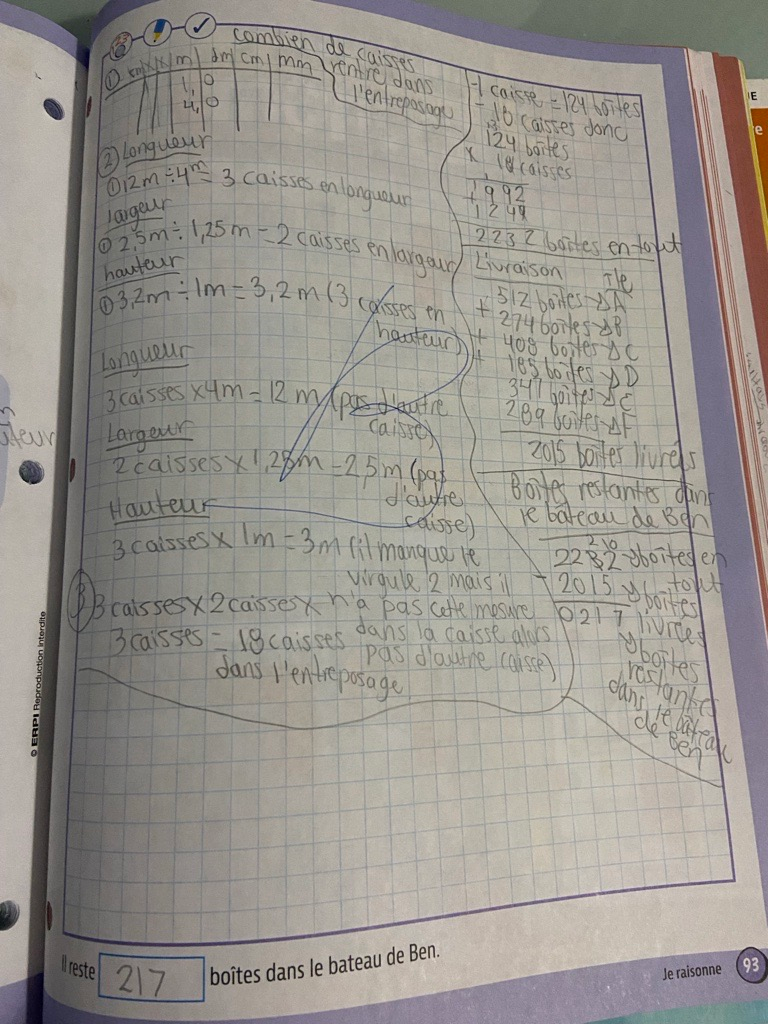 combien de caisses
rentre dans
l'entreposage
① km | x | x | m | dm | cm | mm
1, 0
4, 0
② Longueur
① 12m ÷ 4m = 3 caisses en longueur
largeur
① 2,5m ÷ 1,25m = 2 caisses en largeur
hauteur
① 3,2m ÷ 1m = 3,2m (3 caisses en
hauteur)
Longueur
3 caisses x 4m = 12 m (pas d'autre
caisse)
Largeur
2 caisses x 1,25m = 2,5m (pas
d'autre
caisse)
Hauteur
3 caisses x 1m = 3m (il manque le
virgule 2 mais il
n'a pas cette mesure
dans la caisse alors
pas d'autre caisse)
③ 3 caisses x 2 caisses x
3 caisses = 18 caisses
dans l'entreposage
- 1 caisse = 124 boîtes
- 18 caisses donc
124 boîtes
x 18 caisses
992
+ 1240
2232 boîtes en tout
Livraison île
512 boîtes A
+ 274 boîtes B
+ 408 boîtes C
+ 185 boîtes D
347 boîtes E
289 boîtes F
2015 boîtes livrés
Boîtes restantes dans
le bateau de Ben
2232 boîtes en
tout
- 2015 boîtes
livrées
0217
boîtes
restantes
dans
le bâteau
de
Ben
© ERPI Reproduction interdite
Il reste 217 boîtes dans le bateau de Ben.
Je raisonne 93